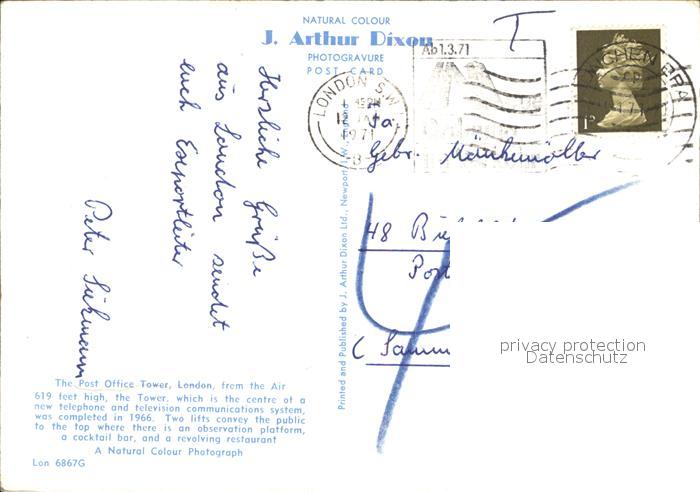 NATURAL COLOUR
J. Arthur Dixon
PHOTOGRAVURE
POST CARD
T
Ab 1.3.71
LONDON S.W.
1971
1P
Herzliche Grüße
aus London sendet
euch Exportleiter
Peter
Fa.
Gebr.
48
( Samm
Printed and Published by J. Arthur Dixon Ltd., Newport, I.W., England
privacy protection
Datenschutz
The Post Office Tower, London, from the Air
619 feet high, the Tower, which is the centre of a
new telephone and television communications system,
was completed in 1966. Two lifts convey the public
to the top where there is an observation platform,
a cocktail bar, and a revolving restaurant
A Natural Colour Photograph
Lon 6867G